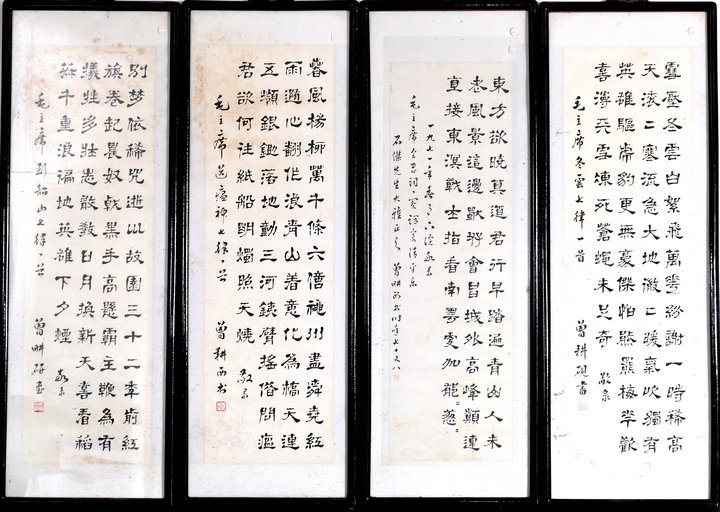 雪壓冬雲白絮飛萬花紛謝一時稀高
天滾〻寒流急大地微〻暖氣吹獨有
英雄驅虎豹更無豪傑怕熊羆梅花歡
喜漫天雪凍死蒼蠅未足奇
毛主席冬雲七律一首 敬录
曾耕硯書
東方欲曉莫道君行早踏遍青山人未
老風景這邊獨好會昌城外高峰顛連
直接東溟戰士指看南粵更加蔥〻
毛主席會昌詞寄調清平樂
一九七一年春
石傑先生大雅正之 曾耕硯書時年七十八
春風楊柳萬千條六億神州盡舜堯紅
雨隨心翻作浪青山着意化為橋天連
五嶺銀鋤落地動三河鐵臂搖借問瘟
君欲何往紙船明燭照天燒
毛主席送瘟神七律一首 敬录
曾耕硯書
別夢依稀咒逝川故園三十二年前紅
旗卷起農奴戟黑手高懸霸主鞭為有
犧牲多壯志敢教日月換新天喜看稻
菽千重浪遍地英雄下夕煙 敬录
毛主席到韶山七律一首
曾耕硯書